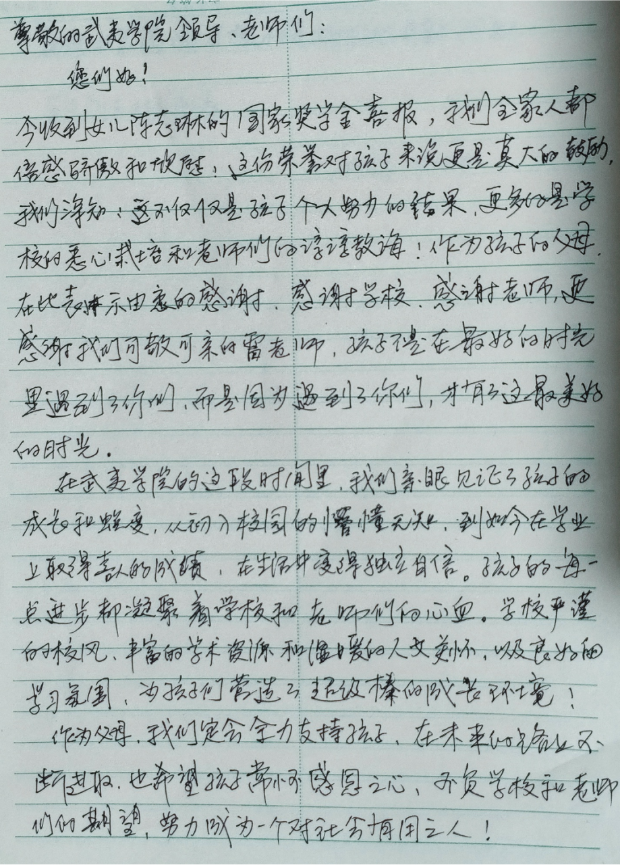 尊敬的武夷学院领导、老师们：
您们好！
今收到女儿陈志琳的国家奖学金喜报，我们全家人都
倍感骄傲和欣慰，这份荣誉对孩子来说更是莫大的鼓励，
我们深知：这不仅仅是孩子个人努力的结果，更多的是学
校的悉心栽培和老师们的谆谆教诲！作为孩子的父母，
在此表示由衷的感谢，感谢学校、感谢老师，更
感谢我们可敬可亲的雷老师，孩子不是在最好的时光
里遇到了你们，而是因为遇到了你们，才有了这最美好
的时光。
在武夷学院的这段时间里，我们亲眼见证了孩子的
成长和蜕变，从初入校园的懵懂无知，到如今在学业
上取得喜人的成绩，在生活中变得独立自信。孩子的每一
点进步都凝聚着学校和老师们的心血。学校严谨
的校风、丰富的学术资源和温暖的人文关怀，以及良好的
学习氛围，为孩子们营造了超级棒的成长环境！
作为父母，我们定会全力支持孩子，在未来的路上不
断进取，也希望孩子常怀感恩之心，不负学校和老师
们的期望，努力成为一个对社会有用之人！